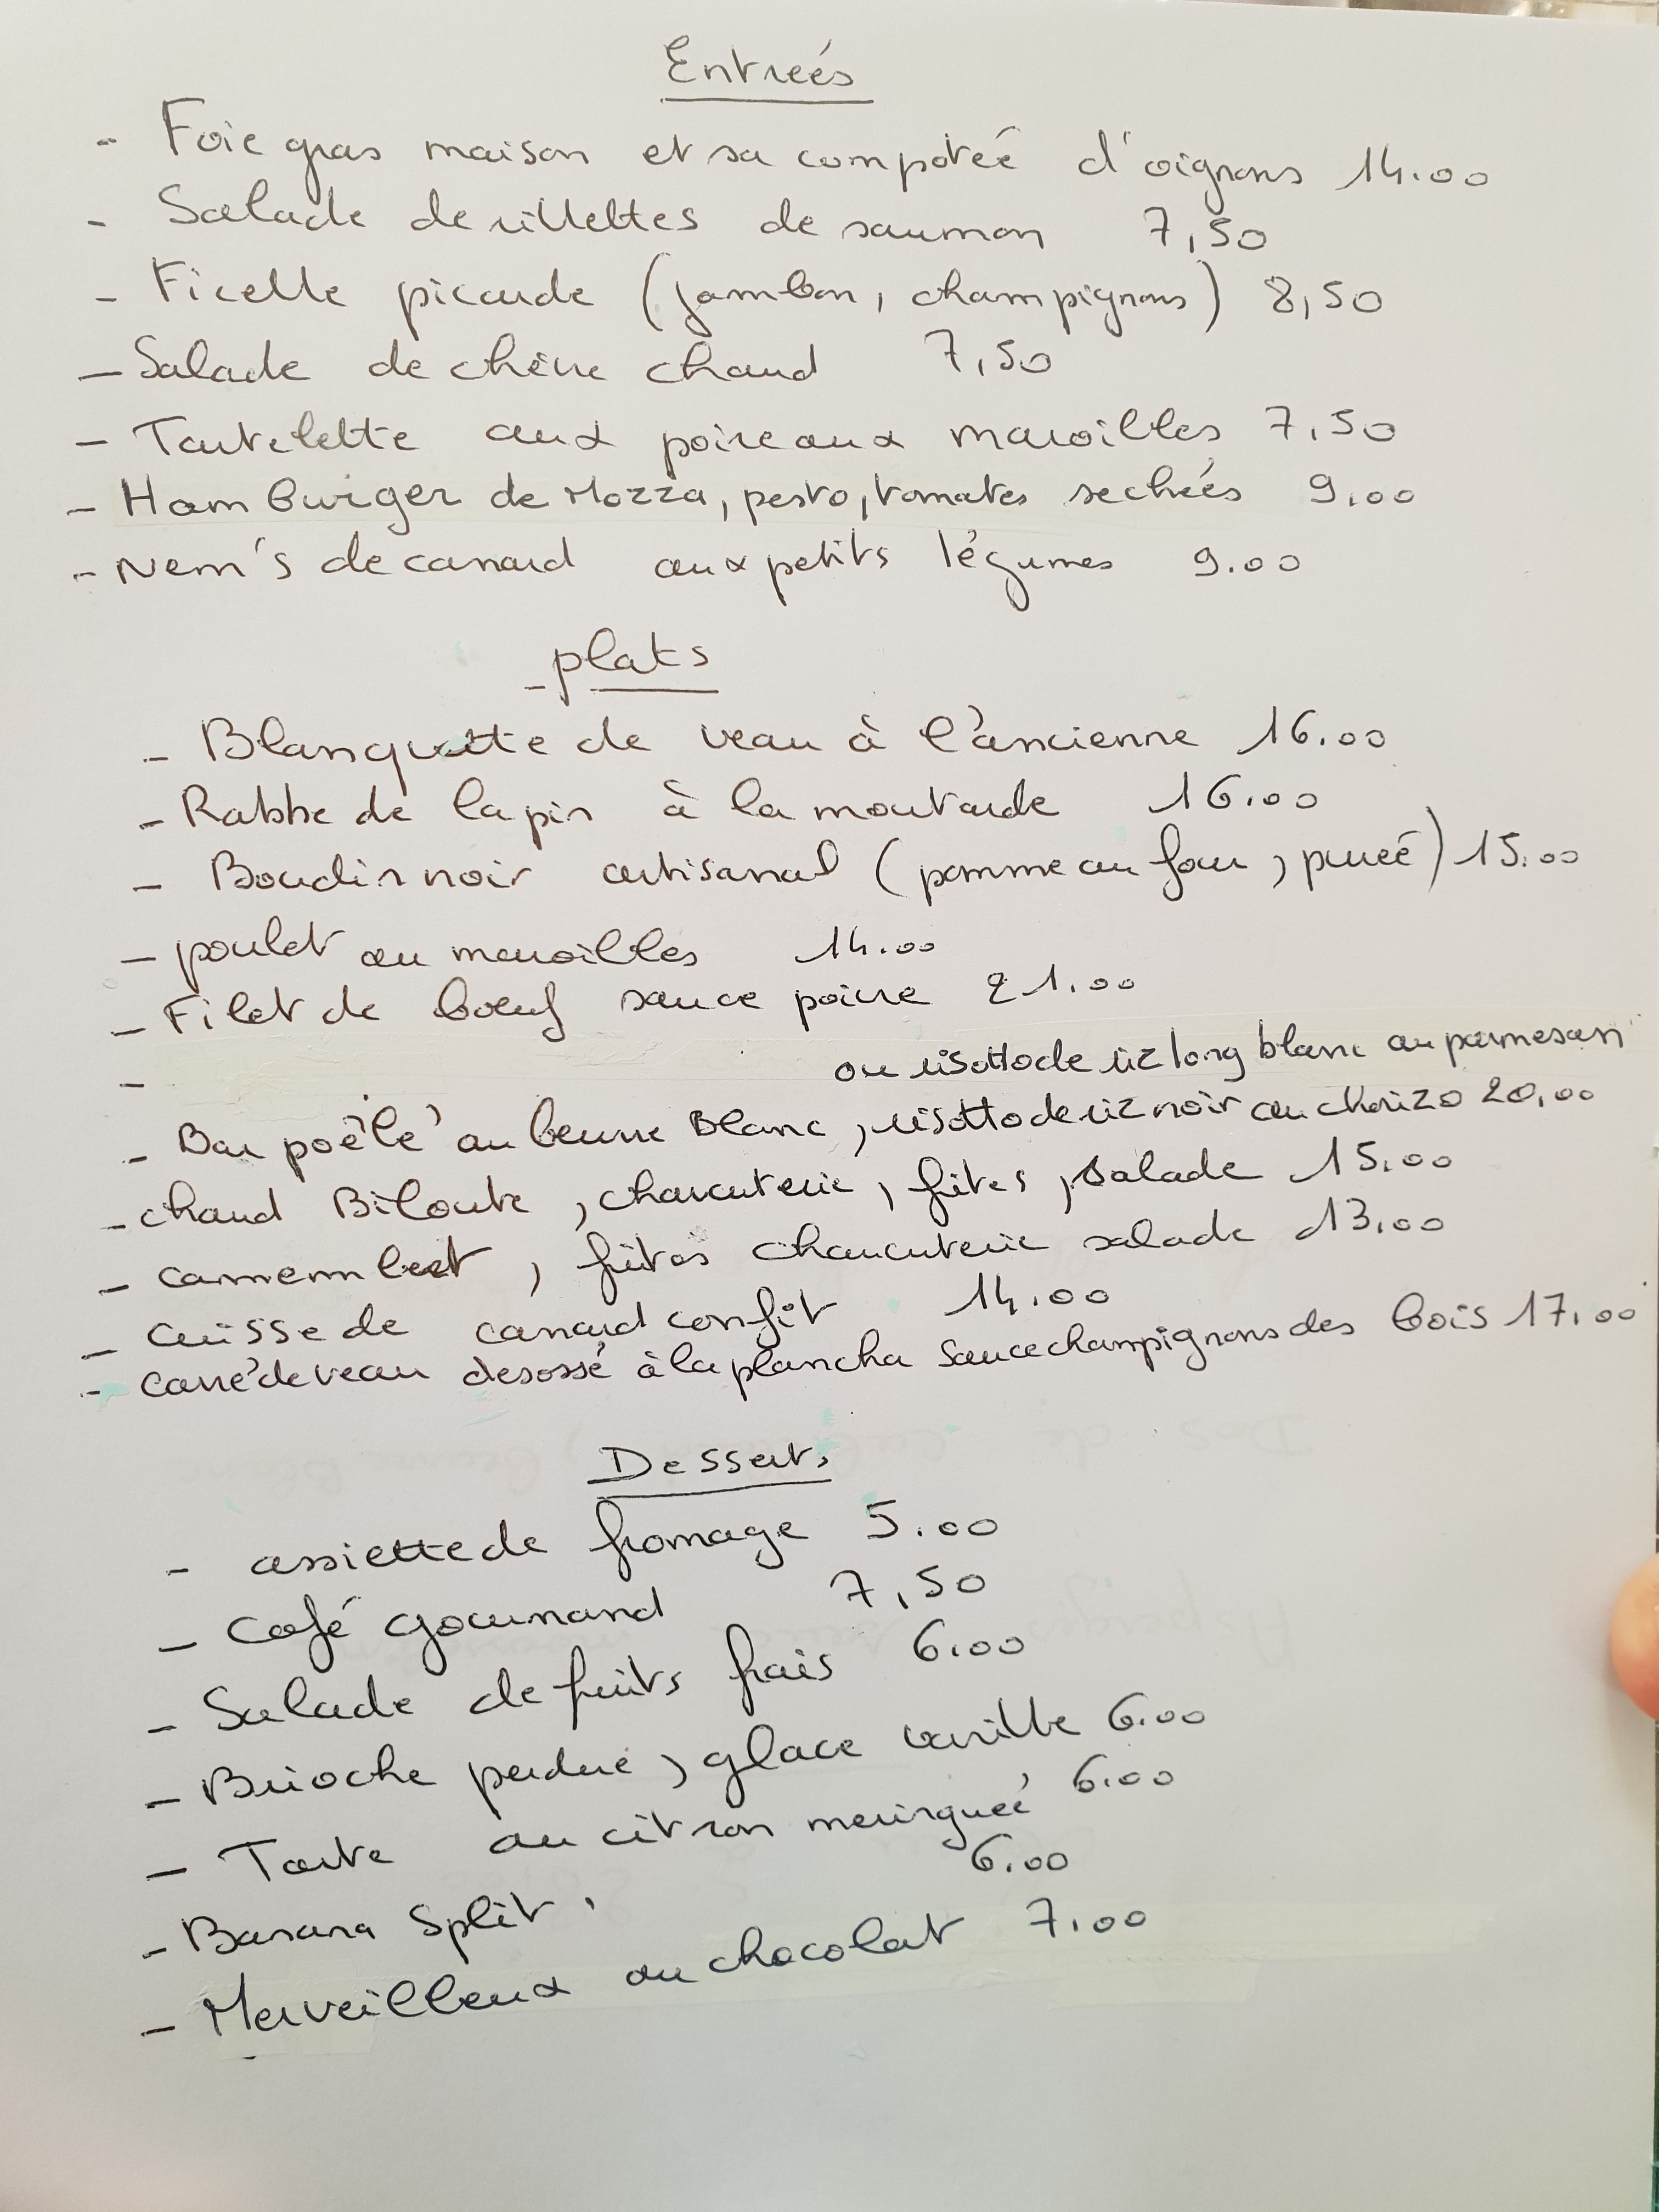 Entreés
- Foie gras maison et sa compoteé d'oignons 14.00
- Salade de rillettes de saumon 7,50
- Ficelle picarde (jambon, champignons) 8,50
- Salade de chèvre chaud 7,50
- Tartelette aux poireaux maroilles 7,50
- Hamburger de Mozza, pesto, tomates sechées 9.00
- Nem's de canard aux petits légumes 9.00
- plats
- Blanquette de veau à l'ancienne 16.00
- Rabbe de lapin à la moutarde 16.00
- Boudin noir artisanal (pomme au four, pureé) 15.00
- poulet au maroilles 14.00
- Filet de boeuf sauce poivre 21.00
ou risotto de riz long blanc au parmesan
-
- Bar poêlé au beurre Blanc, risotto de riz noir au chorizo 20,00
- chaud Biloute, charcuterie, frites, salade 15.00
- camembert, frites charcuterie salade 13,00
- cuisse de canard confit 14.00
- carré de veau desossé à la plancha Sauce champignons des bois 17.00
Desserts
- assiette de fromage 5.00
- Café gourmand 7,50
- Salade de fruits frais 6.00
- Brioche perdue, glace vanille 6.00
- Tarte au citron meringueé 6.00
- Banana Split. 6.00
- Merveilleux au chocolat 7.00